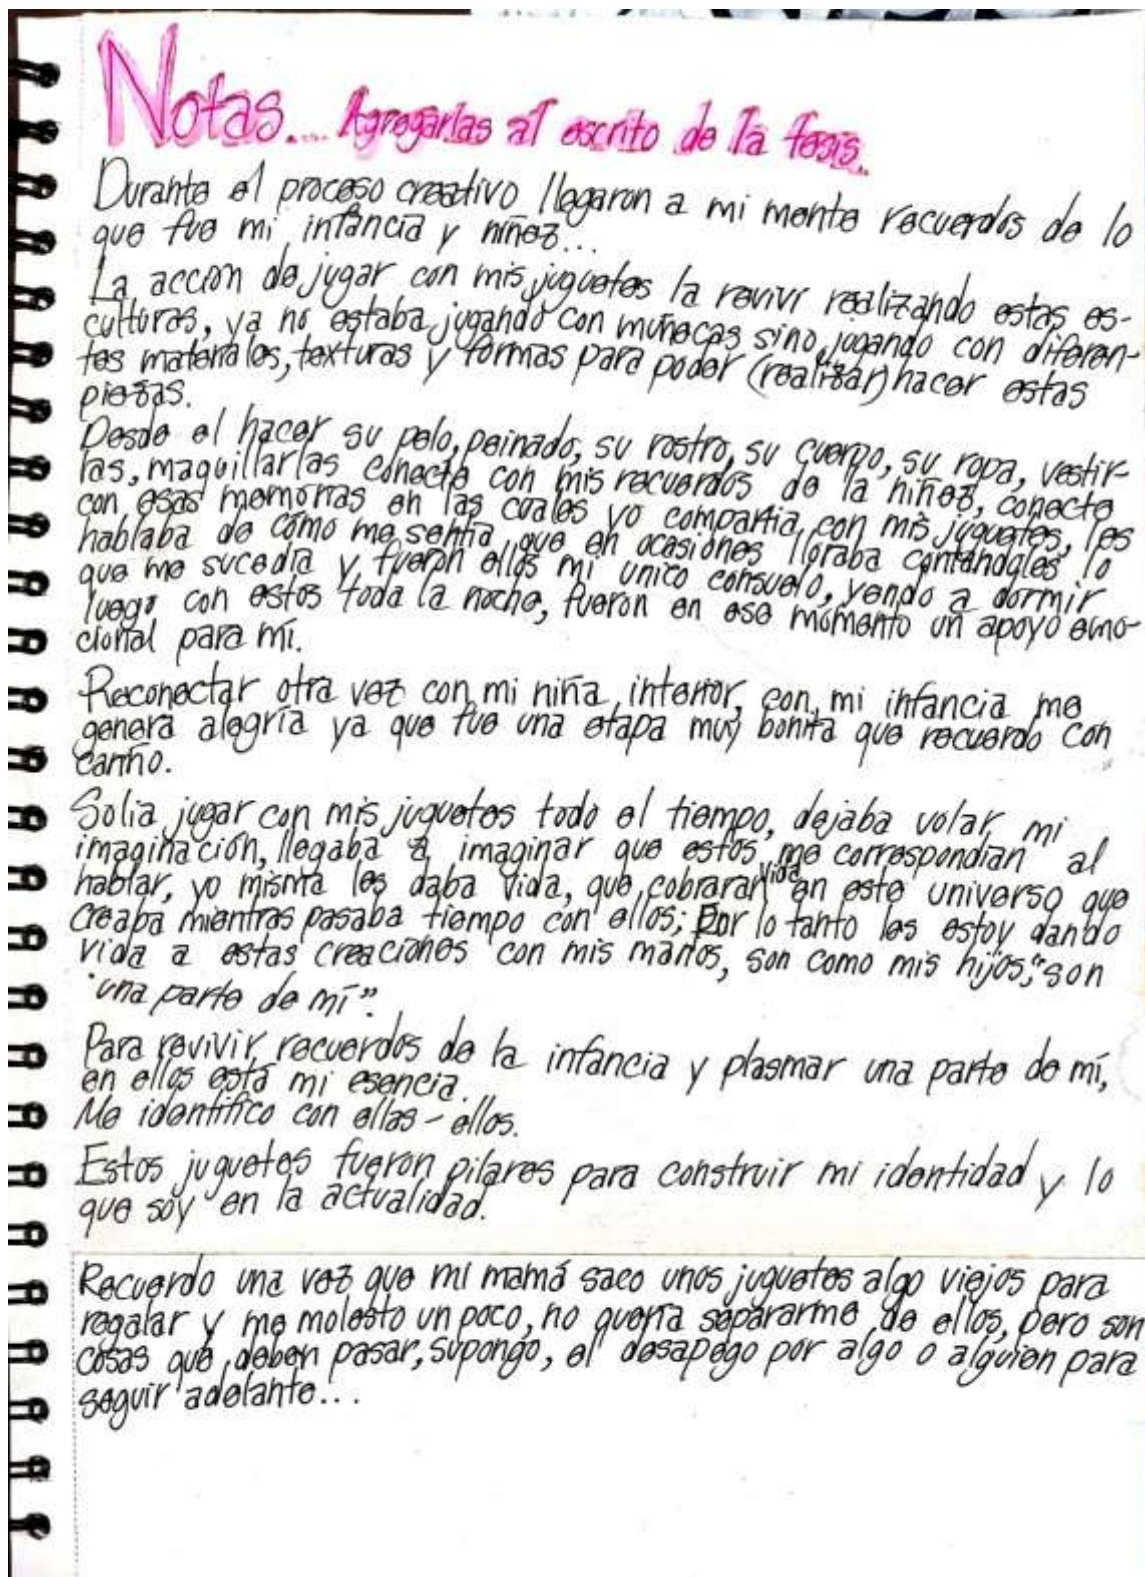 Notas... Agregarlas al escrito de la tesis..
Durante el proceso creativo llegaron a mi mente recuerdos de lo
que fue mi infancia y niñez...
La acción de jugar con mis juguetes la reviví realizando estas es-
culturas, ya no estaba jugando con muñecas sino jugando con diferen-
tes materiales, texturas y formas para poder (realizar) hacer estas
piezas.
Desde el hacer su pelo, peinado, su rostro, su cuerpo, su ropa, vestir-
las, maquillarlas conecte con mis recuerdos de la niñez, conecte
con esas memorias en las cuales yo compartia con mis juguetes, les
hablaba de cómo me sentía, que en ocasiones lloraba contandoles lo
que me sucedía y fueron ellos mi unico consuelo, yendo a dormir
luego con estos toda la noche, fueron en ese momento un apoyo emo-
cional para mí.
Reconectar otra vez con mi niña interior, con mi infancia me
genera alegría ya que fue una etapa muy bonita que recuerdo con
cariño.
Solia jugar con mis juguetes todo el tiempo, dejaba volar mi
imaginación, llegaba a imaginar que estos me correspondían al
hablar, yo misma les daba vida, que cobraran vida en este universo que
creaba mientras pasaba tiempo con ellos; Por lo tanto les estoy dando
vida a estas creaciones con mis manos, son como mis hijos, "son
"una parte de mí".
Para revivir recuerdos de la infancia y plasmar una parte de mí,
en ellos está mi esencia.
Me identifico con ellas - ellos.
Estos juguetes fueron pilares para construir mi identidad y lo
que soy en la actualidad.
Recuerdo una vez que mi mamá saco unos juguetes algo viejos para
regalar y me molesto un poco, no quería separarme de ellos, pero son
cosas que deben pasar, supongo, el desapego por algo o alguien para
seguir adelante...